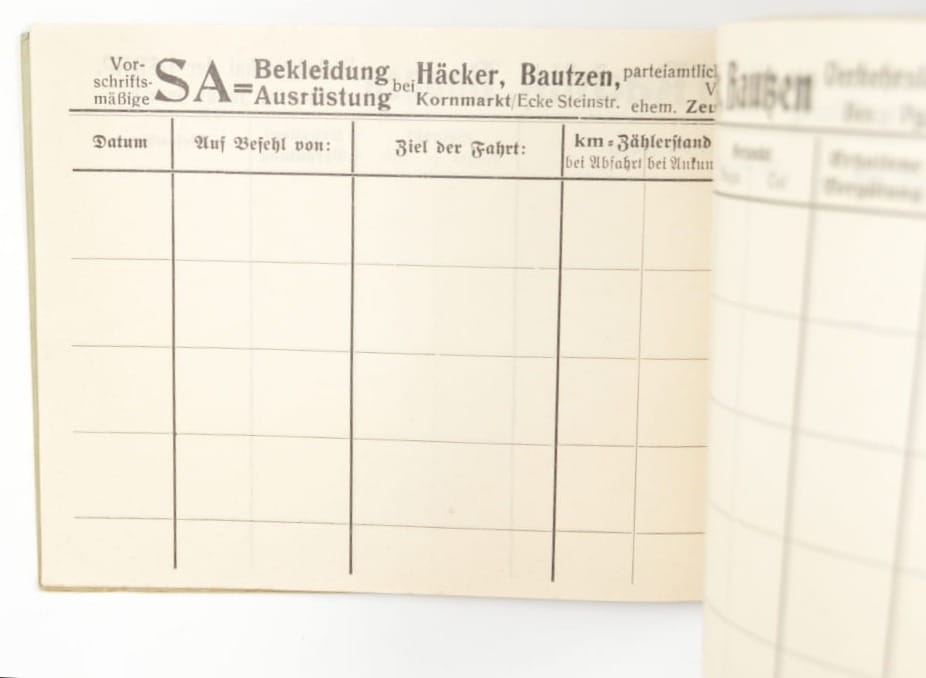 Vor-
schrifts-
mäßige
SA=
Bekleidung
Ausrüstung
bei
Häcker, Bautzen,
Kornmarkt/Ecke Steinstr.
parteiamtlich
V
ehem. Zeu
Datum
Auf Befehl von:
Ziel der Fahrt:
km=Zählerstand
bei Abfahrt
bei Ankun
Bautzen